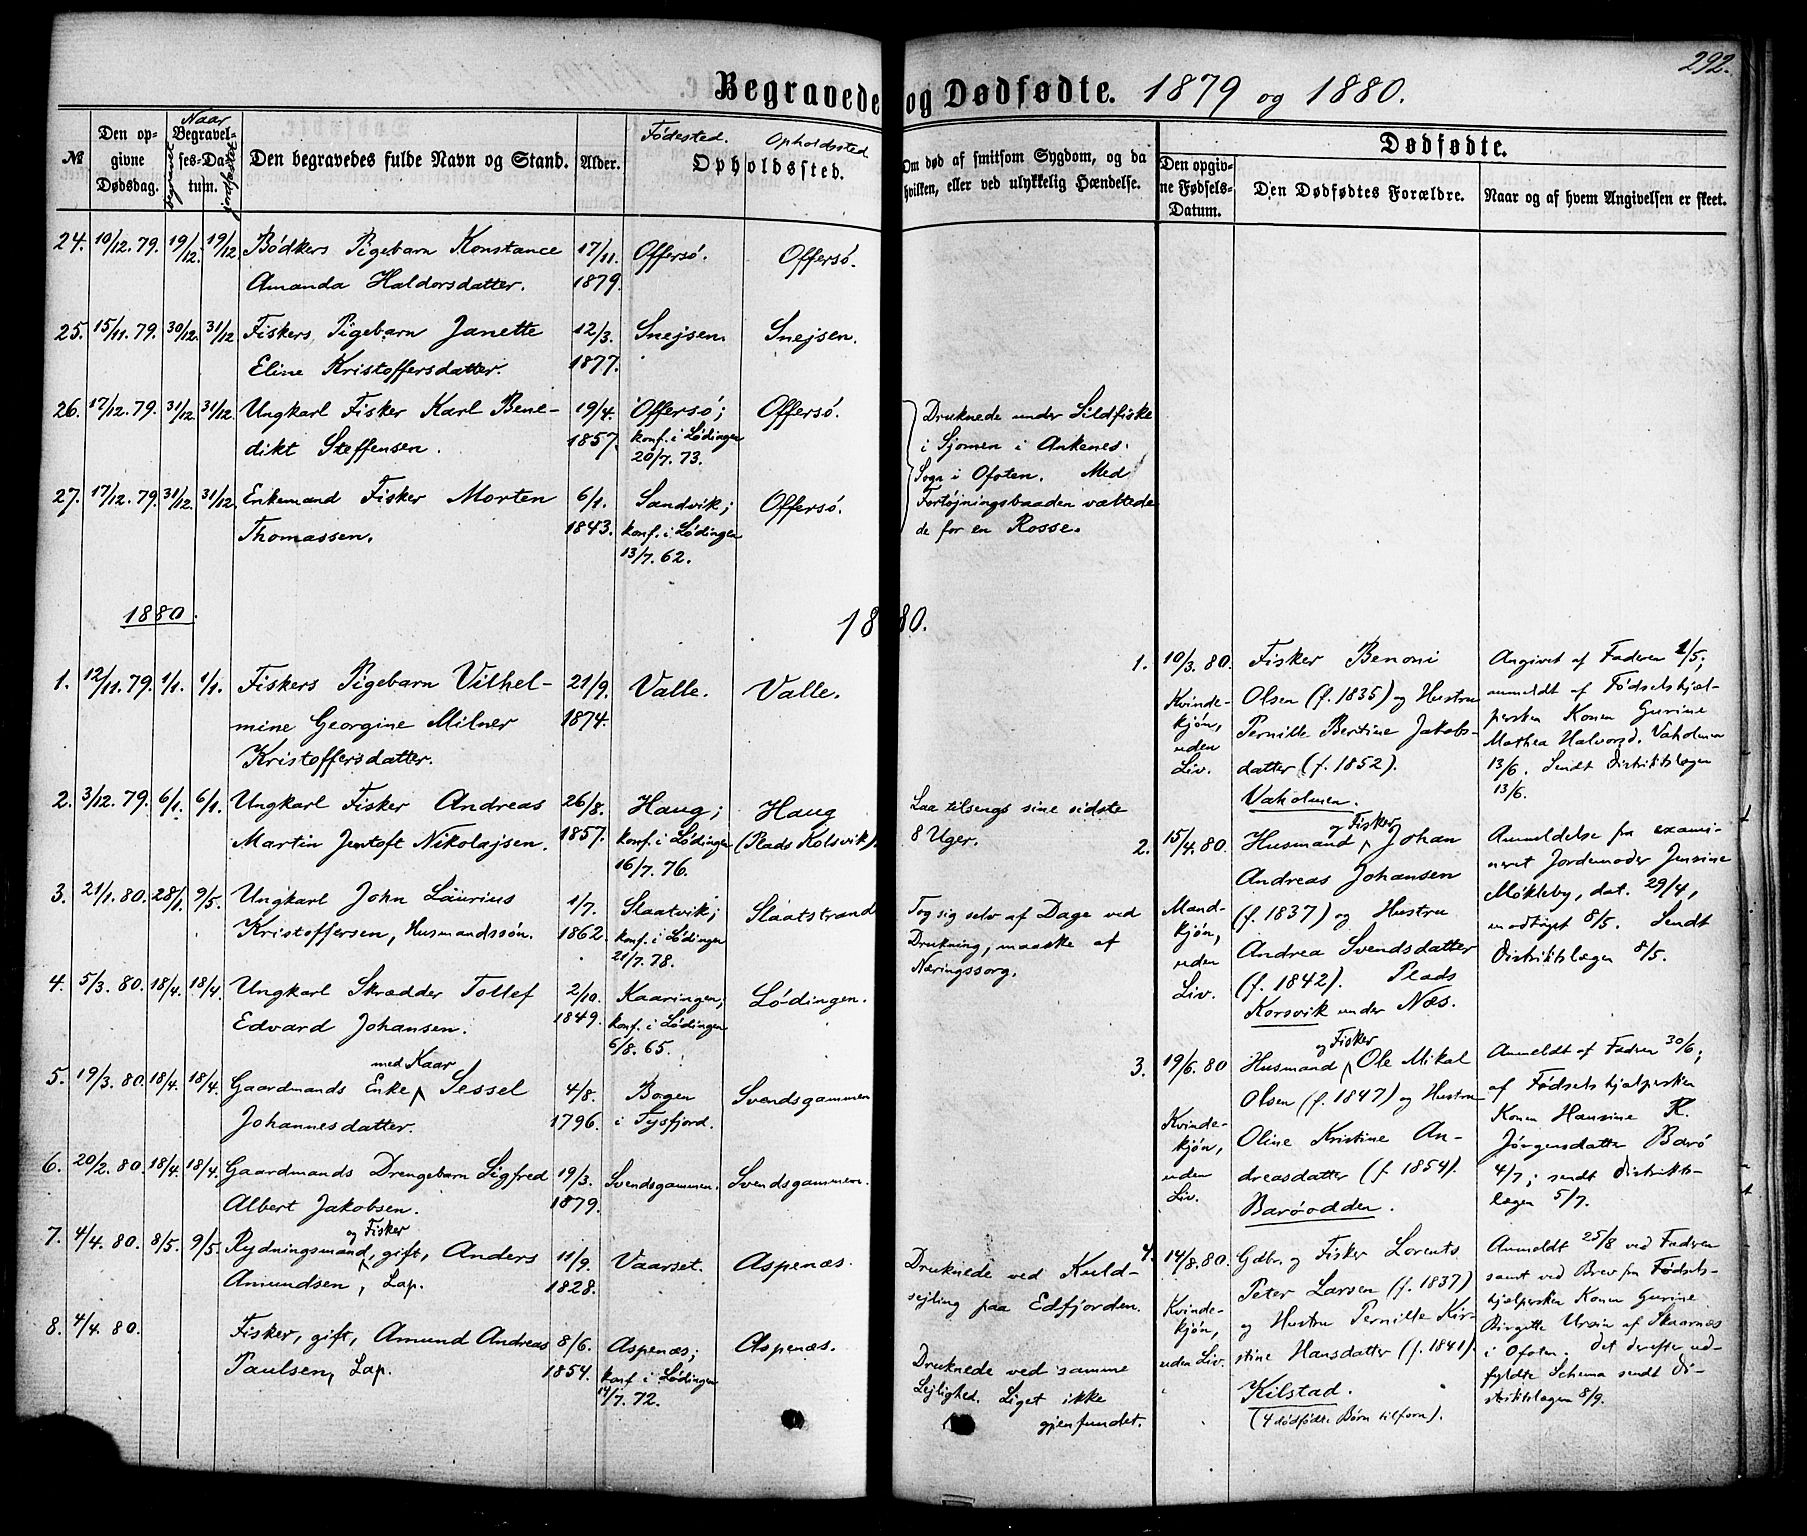 292.
Begravede og Dødfødte. 1879 og 1880.
№
Den opgivne Dødsdag.
Naar
Begravelses-Datum.
begravet
jordfæstet
Den begravedes fulde Navn og Stand.
Alder.
Fødested. Opholdssted
Opholdssted.
Om død af smitsom Sygdom, og da
hvilken, eller ved ulykkelig Hændelse.
Dødfødte.
Den opgivne Fødsels-Datum.
Den Dødfødtes Forældre.
Naar og af hvem Angivelsen er skeet.
24. 10/12. 79. 19/12. 19/12. Bødkers Pigebarn Konstance 17/11. Offersø. Offersø.
Amanda Haldorsdatter. 1879.
25. 15/11. 79. 30/12. 31/12. Fiskers Pigebarn Janette 12/3. Snejsen. Snejsen.
Eline Kristoffersdatter. 1877.
26. 17/12. 79. 31/12. 31/12. Ungkarl Fisker Karl Bene- 19/4. Offersø; Offersø.
dikt Steffensen. 1857. konf. i Lødingen
20/7. 73.
Druknede under Sildfiske
i Sjomen i Ankenes
Sogn i Ofoten. Med
Fortøjningsbaaden væltede
de for en Rosse.
27. 17/12. 79. 31/12. 31/12. Enkemand Fisker Morten 6/1. Sandvik; Offersø.
Thomassen. 1843. konf. i Lødingen
13/7. 62.
1880.
1880.
1. 12/11. 79. 1/1. 1/1. Fiskers Pigebarn Vilhel- 21/9. Valle. Valle.
mine Georgine Milner 1874.
Kristoffersdatter.
2. 3/12. 79. 6/1. 6/1. Ungkarl Fisker Andreas 26/8. Haug; Haug
Martin Jentoft Nikolajsen. 1857. konf. i Lødingen (Plads Kolsvik).
16/7. 76.
Laa tilsengs sine sidste
8 Uger.
3. 21/1. 80. 28/1. 9/5. Ungkarl John Laurius 1/7. Slaatvik; Slaatstrand
Kristoffersen, Husmandssøn. 1862. konf. i Lødingen
21/7. 78.
Tog sig selv af Dage ved
Drukning, maaske af
Næringssorg.
4. 5/3. 80. 18/4. 18/4. Ungkarl Skrædder Tollef 2/10. Kaaringen; Lødingen.
Edvard Johansen. 1849. konf. i Lødingen
6/8. 65.
5. 19/3. 80. 18/4. 18/4. Gaardmands Enke med Kaar Sessel 4/8. Bogen Svendsgammen
Johannesdatter. 1796. i Tysfjord.
6. 20/2. 80. 18/4. 18/4. Gaardmands Drengebarn Sigfred 19/3. Svendsgammen. Svendsgammen.
Albert Jakobsen. 1879.
7. 4/4. 80. 8/5. 9/5. Rydningsmand og Fisker, gift, Anders 11/9. Vaarset. Aspenæs.
Amundsen, Lap. 1828.
Druknede ved Kuld-
sejling paa Edfjorden.
8. 4/4. 80. Fisker, gift, Amund Andreas 8/6. Aspenæs; Aspenæs.
Paulsen, Lap. 1854. konf. i Lødingen
14/7. 72.
Druknede ved samme
Lejlighed. Liget ikke
gjenfundet.
1. 10/3. 80. Kvinde-
kjøn,
uden
Liv.
Fisker Benoni
Olsen (f. 1835) og Hustru
Pernille Bertine Jakobs-
datter (f. 1852).
Vaholmen.
Angivet af Faderen 1/5;
anmeldt af Fødselshjæl-
persken Konen Gurine
Mathea Halvorsd. Vaholmen
13/6. Sendt Distriktslægen
13/6.
2. 15/4. 80. Mand-
kjøn,
uden
Liv.
Husmand og Fisker Johan
Andreas Johansen
(f. 1837) og Hustru
Andrea Svendsdatter
(f. 1842). Plads
Korsvik under Næs.
Anmeldelse fra exami-
neret Jordemoder Jensine
Møkleby, dat. 29/4,
modtaget 8/5. Sendt
Distriktslægen 8/5.
3. 19/6. 80 Kvinde-
kjøn,
uden
Liv.
Husmand og Fisker Ole Mikal
Olsen (f. 1847) og Hustru
Oline Kristine An-
dreasdatter (f. 1854).
Barøodden.
Anmeldt af Faderen 30/6;
af Fødselshjælpersken
Konen Hansine R.
Jørgensdatter Barø
4/7; sendt Distrikts-
lægen 5/7.
4. 14/8. 80. Kvinde-
kjøn,
uden Liv.
Gdbr. og Fisker Lorents
Peter Larsen (f. 1837)
og Hustru Pernille Kir-
stine Hansdatter (f. 1841).
Kilstad.
(4 dødfødte Børn tilforn).
Anmeldt 25/8 ved Faderen
samt ved Brev fra Fødsels-
hjælpersken Konen Gurine
Birgitte Ursin af Skarnæs
i Ofoten. Det derefter ud-
fyldte Schema sendt Di-
striktslægen 8/9.